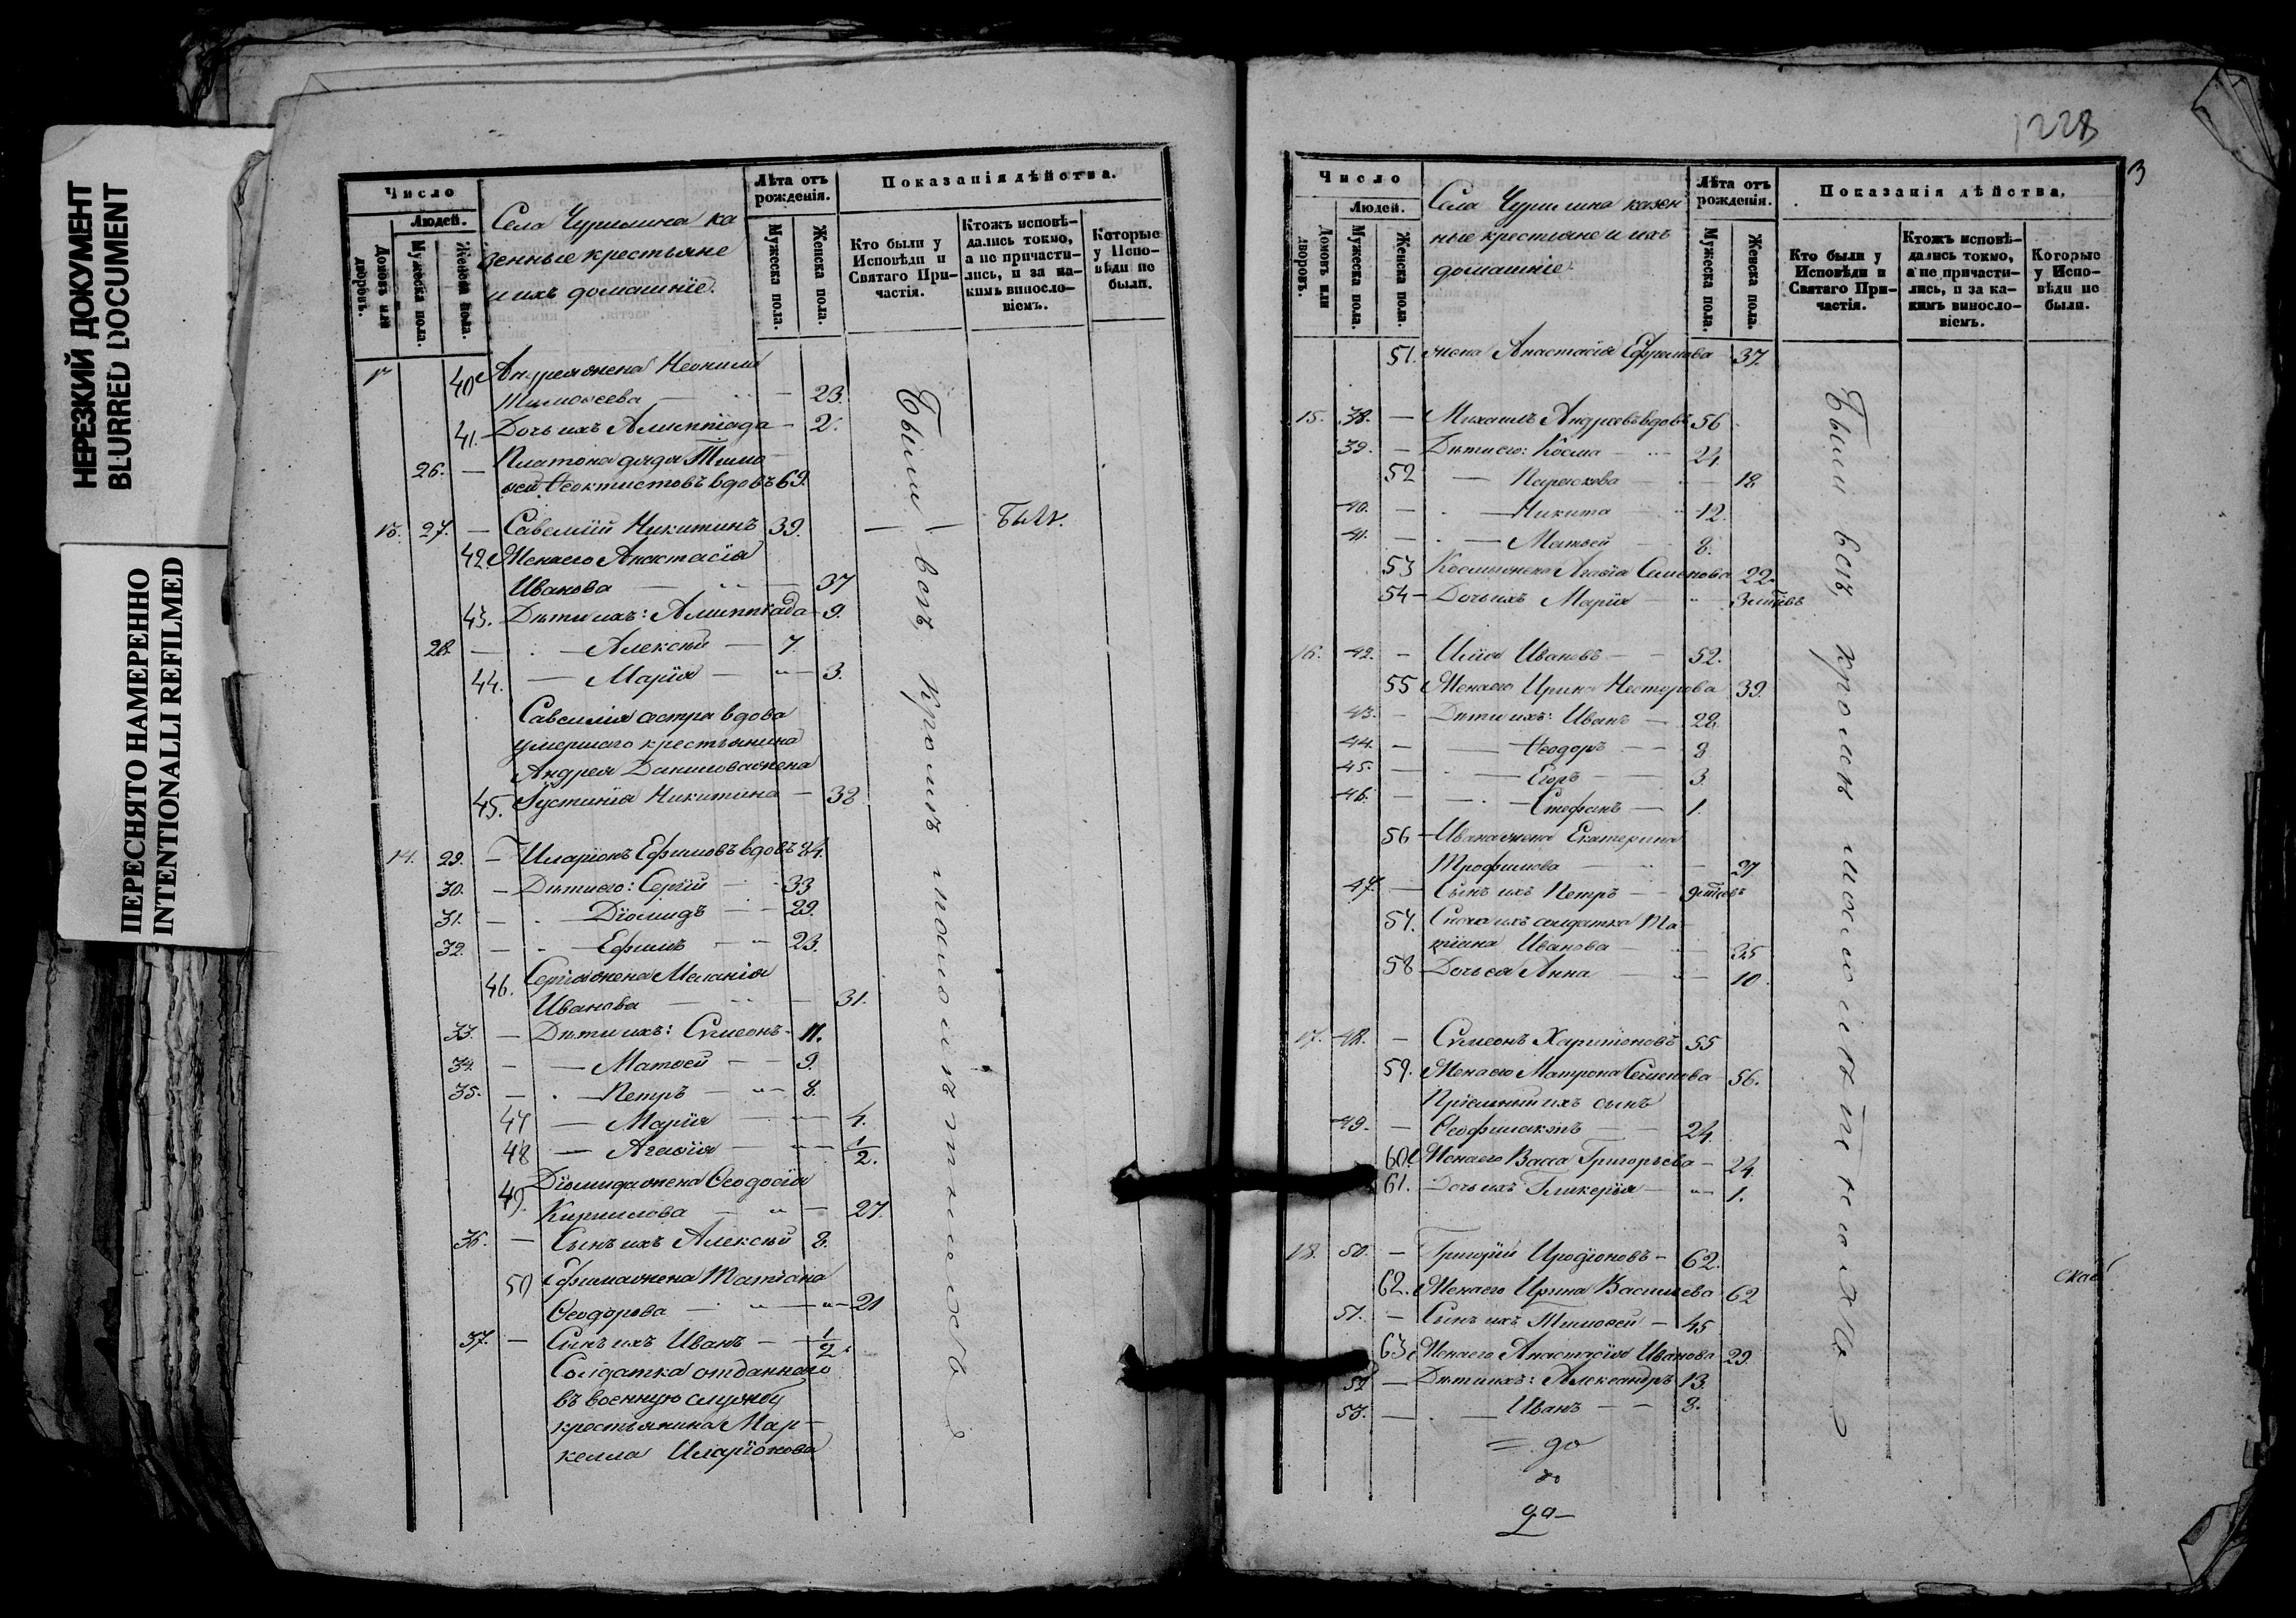 НЕРЕЗКИЙ ДОКУМЕНТ
BLURRED DOCUMENT
ПЕРЕСНЯТО НАМЕРЕННО
INTENTIONALLI REFILMED
Число
Людей.
Домовъ или дворовъ.
Мужеска пола.
Женска пола.
Села Чурилина ка
зенные крестьяне
и ихъ домашніе.
Лѣта отъ рожденія.
Мужеска пола.
Женска пола.
Показанія дѣйства.
Кто были у Исповѣди и Святаго Причастія.
Ктожъ исповѣдались токмо, а не причастились, и за какимъ винословіемъ.
Которые у Исповѣди не были.
40 Андрея жена Неонила
Тимоѳеева — 23.
41. Дочь ихъ Алимпіада — 2.
26. — Платона дядя Тимо
ѳей Ѳеоктистовъ вдовъ 69.
13. 27. — Савелій Никитинъ 39.
42. Жена его Анастасія
Иванова — 37
43. Дѣти ихъ: Алимпіада 9.
28. — Алексѣй — 7
44. — Марія — 3.
Савелія сестра вдова
умершаго крестьянина
Андрея Данилова жена
45. Іустинія Никитина — 38
14. 29. — Иларіонъ Ефимовъ вдовъ 84.
30. — Дѣти его: Сергій 33
31. — Діомидъ — 29.
32. — Ефимъ — 23.
46. Сергія жена Меланія
Иванова — 31.
33. — Дѣти ихъ: Сѵмеонъ 11.
34. — Матѳей — 9.
35. — Петръ — 8.
47 — Марія — 4.
48 — Агаѳія — 1/2.
49. Діомида жена Ѳеодосія
Кирилова — 27.
36. — Сынъ ихъ Алексѣй 8.
50 Ефима жена Татіана
Ѳеодорова — 21
37. — Сынъ ихъ Иванъ — 1/2
Солдатка отданнаго
въ военную службу
крестьянина Мар-
келла Иларіонова
Были всѣ кромѣ
1228
3
Число
Людей.
Домовъ или дворовъ.
Мужеска пола.
Женска пола.
Села Чурилина казен
ные крестьяне и ихъ
домашніе.
Лѣта отъ рожденія.
Мужеска пола.
Женска пола.
Показанія дѣйства.
Кто были у Исповѣди и Святаго Причастія.
Ктожъ исповѣдались токмо, а не причастились, и за какимъ винословіемъ.
Которые у Исповѣди не были.
51. жена Анастасія Ефремова 37.
15. 38. — Михаилъ Андреевъ вдовъ 56
39. — Дѣти его: Косма — 24
52 — Параскева — 18
40. — Никита — 12.
41. — Матѳей — 8.
53 Космы жена Агаѳія Симеонова 22.
54 — Дочь ихъ Марія — 3 мѣсяцевъ
16. 42. — Илія Ивановъ — 52.
55 Жена его Ирина Несторова 39.
43. — Дѣти ихъ: Иванъ — 28.
44. — Ѳеодоръ — 8
45. — Егоръ — 3.
46. — Стефанъ — 1.
56 — Ивана жена Екатерина
Трофимова — 27
47. — Сынъ ихъ Петръ — 9 мѣсяцевъ
57. Сноха ихъ солдатка Та
тіана Иванова — 35
58 Дочь ея Анна — 10.
17. 48. — Сѵмеонъ Харитоновъ 55
59. Жена его Матрона Семенова 56.
Пріемный ихъ сынъ
49. — Ѳеофилактъ — 24.
60. Жена его Васса Григорьева — 24.
61. Дочь ихъ Гликерія — 1.
18. 50. — Григорій Иродіоновъ — 62.
62. Жена его Ирина Васильева 62
51. — Сынъ ихъ Тимоѳей — 45
63 Жена его Анастасія Иванова 29.
52 — Дѣти ихъ: Александръ 13.
53. — Иванъ — 8.
Были всѣ кромѣ